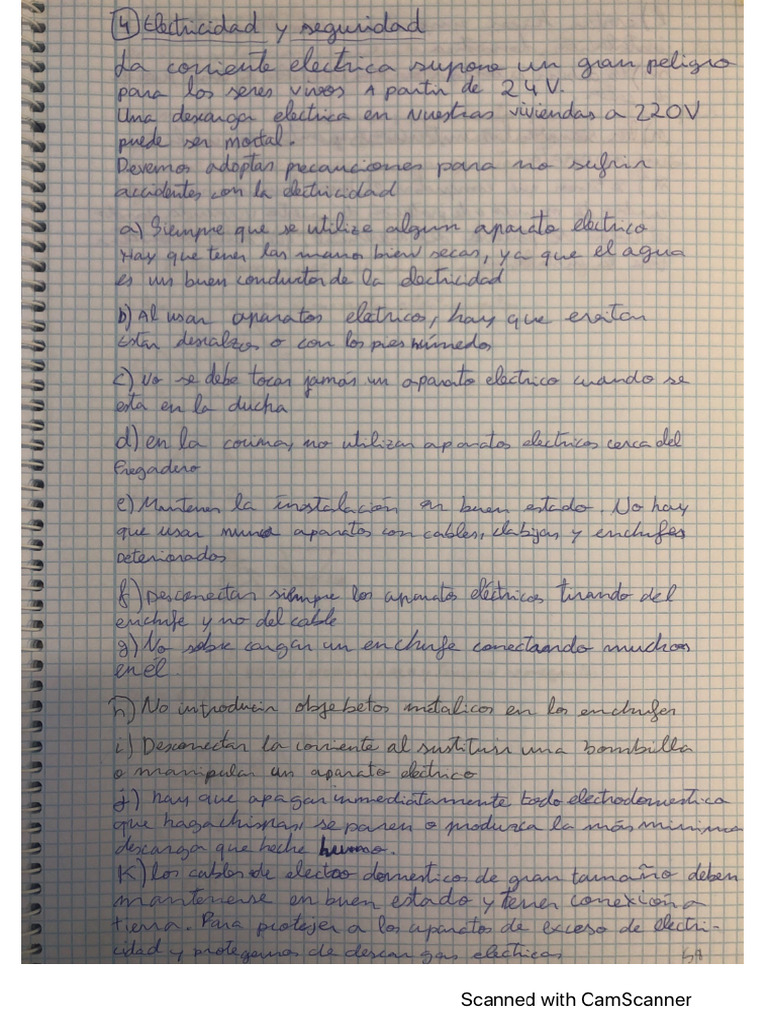 4 Electricidad y seguridad
La corriente electrica supone un gran peligro
para los seres vivos A partir de 24V.
Una descarga electrica en Nuestras viviendas a 220V
puede ser mortal.
Devemos adoptar precauciones para no sufrir
accidentes con la electricidad
a) Siempre que se utilize algun aparato electrico
Hay que tener las manos bien secas, ya que el agua
es un buen conductor de la electricidad
b) Al usar aparatos eletricos, hay que evitar
estar descalzos o con los pies húmedos
c) No se debe tocar jamás un aparato electrico cuando se
esta en la ducha
d) en la cocina, no utilizar aparatos electricos cerca del
fregadero
e) Mantener la instalación en buen estado. No hay
que usar nunca aparatos con cables, clabijas y enchufes
Deteriorados
f) Desconectar siempre los aparatos eléctricos tirando del
enchufe y no del cable
g) No sobre cargar un enchufe conectando muchos
en él.
h) No introducir objebetos metalicos en los enchufes
i) Desconectar la corriente al sustituir una bombilla
o manipular un aparato electrico
j) hay que apagar inmediatamente todo electrodomestico
que haga chispas, se paren o produzca la más minima
descarga que heche humo.
K) los cables de electro domesticos de gran tamaño deben
mantenerse en buen estado y tener conexión a
tierra. Para protejer a los aparatos de exceso de electri-
cidad y protegernos de descar gas electricas
Scanned with CamScanner